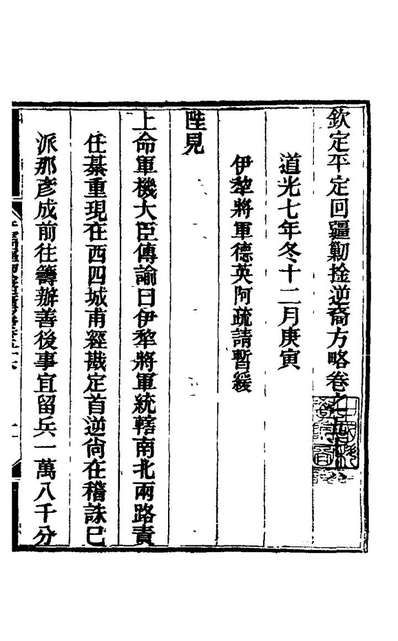 欽定平定回疆勦捦逆裔方略卷之
道光七年冬十二月庚寅
伊犂將軍德英阿疏請暫緩
陛見
上命軍機大臣傳諭曰伊犂將軍統轄南北兩路責
任綦重現在西四城甫經戡定首逆尙在稽誅已
派那彥成前往籌辦善後事宜留兵一萬八千分